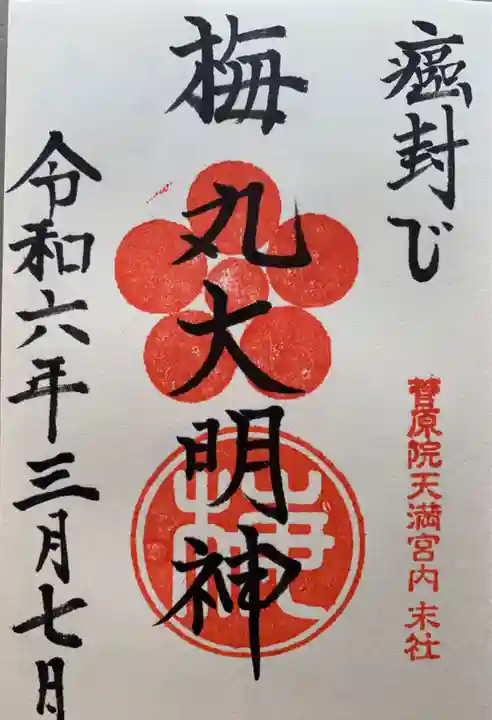 癌封じ
菅原院天満宮内 末社
梅丸大明神
令和六年三月七日